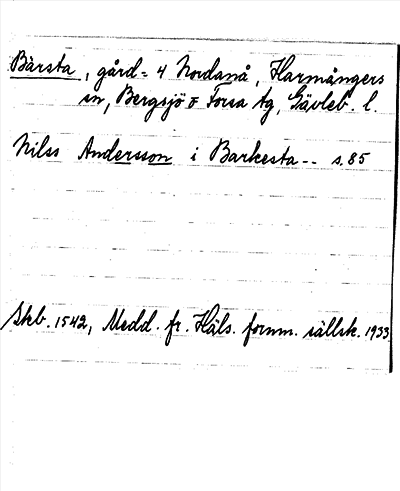 Bärsta, gård = 4 Nordanå, Harmångers
sn, Bergsjö o Forsa tg, Gävleb. l.
Nilss Andersson i Barkesta -- s. 85
Skb. 1542, Medd. fr. Häls. fornm. sällsk. 1933